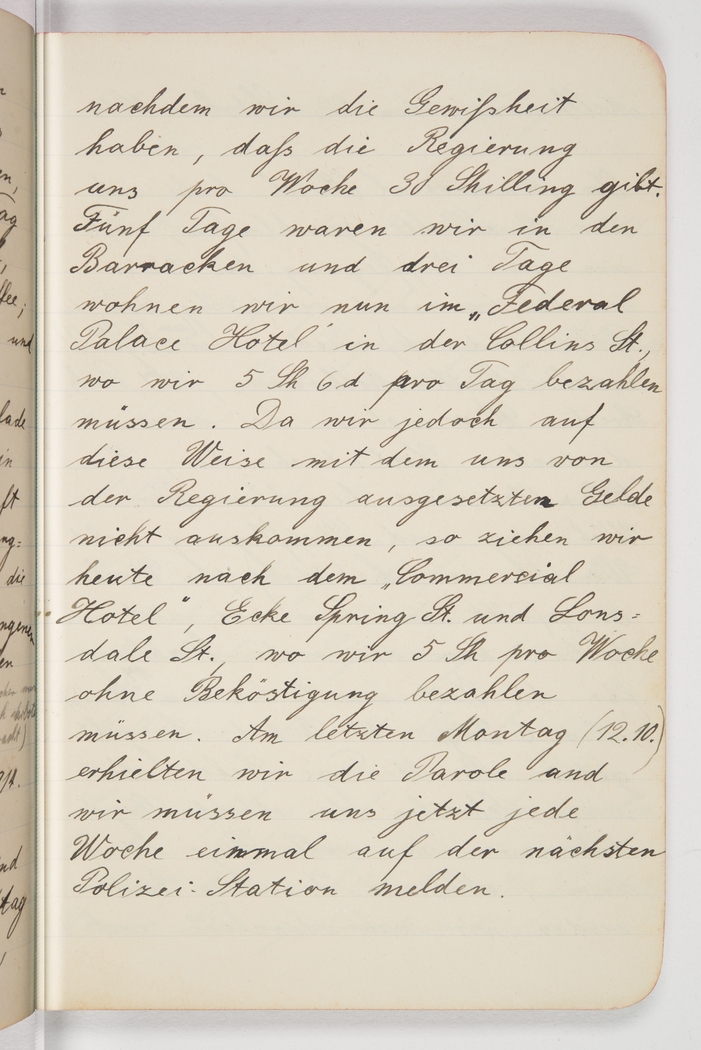 nachdem wir die Gewißheit
haben, daß die Regierung
uns pro Woche 30 Shilling gibt.
Fünf Tage waren wir in den
Barracken und drei Tage
wohnen wir nun im „Federal
Palace Hotel" in der Collins St.,
wo wir 5 Sh 6 d pro Tag bezahlen
müssen. Da wir jedoch auf
diese Weise mit dem uns von
der Regierung ausgesetzten Gelde
nicht auskommen, so ziehen wir
heute nach dem „Commercial
Hotel", Ecke Spring St. und Lons=
dale St., wo wir 5 Sh pro Woche
ohne Beköstigung bezahlen
müssen. Am letzten Montag (12.10.)
erhielten wir die Parole und
wir müssen uns jetzt jede
Woche einmal auf der nächsten
Polizei-Station melden.